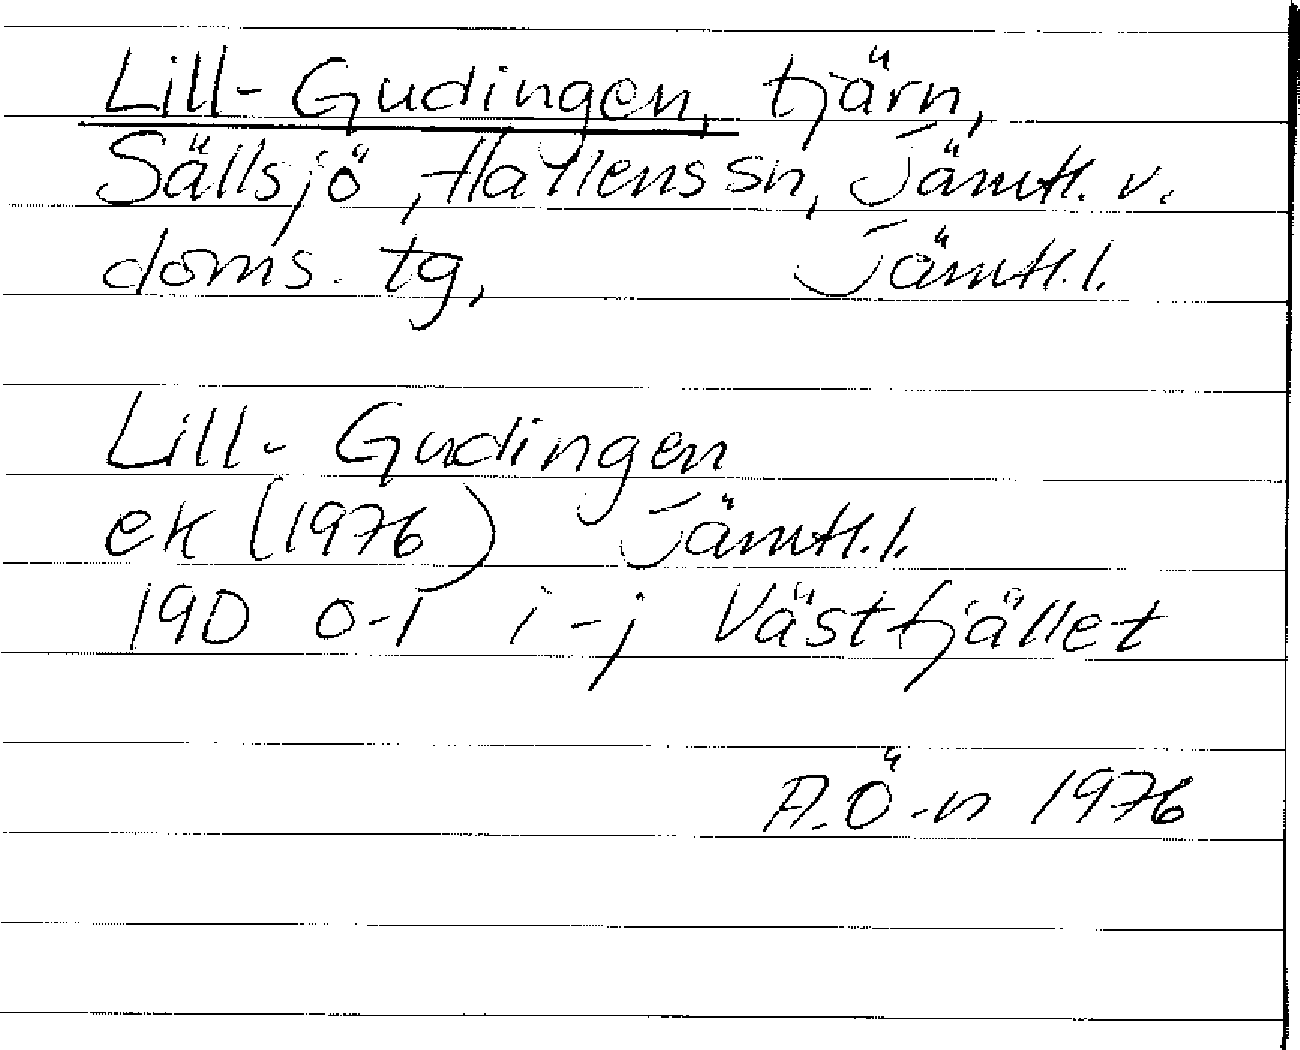 Lill-Gudingen, tjärn,
Sällsjö, Hallens sn, Jämtl. v.
doms. tg, Jämtl. l.
Lill- Gudingen
ek (1976) Jämtl. l.
19D 0-1 i-j Västfjället
A.Ö-n 1976